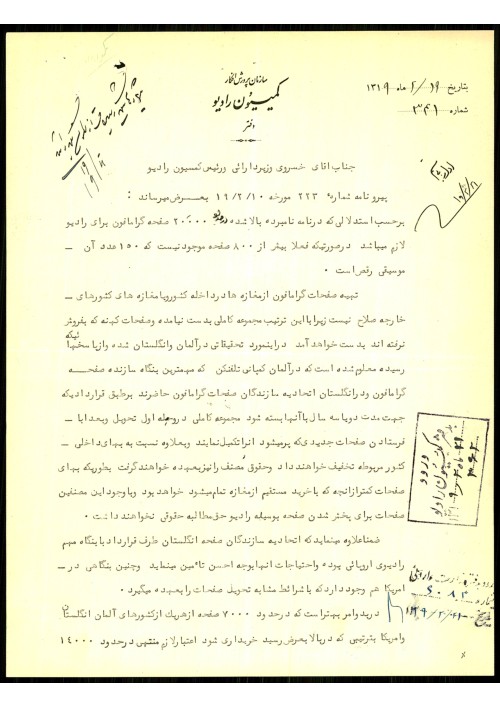 سازمان پرورش افکار
کمیسیون رادیو
دفتر
بتاریخ ۱۹ / ۲ ماه ۱۳۱۹
شماره ۳۴۱
جناب آقای خسروی وزیر دارائی ورئیس کمسیون رادیو
پیرو نامه شماره ۲۲۳ مورخه ۱۹/۲/۱۰ بعرض میرساند :
برحسب استدلالی که درنامه نامبرده بالا شده ۲۰۰۰۰ صفحه گرامافون برای رادیو
لازم میباشد درصورتیکه فعلا بیش از ۸۰۰ صفحه موجود نیست که ۱۵۰ عدد آن –
موسیقی رقص است ۰
تهیه صفحات گرامافون ازمغازه ها درداخله کشور ویا مغازه های کشورهای –
خارجه صلاح نیست زیرا با این ترتیب مجموعه کاملی بدست نیامده وصفحات کهنه که بفروش
نرفته اند بدست خواهد آمد دراینمورد تحقیقاتی درآلمان وانگلستان شده وازپاسخهائیکه
رسیده معلوم شده است که درآلمان کمپانی تلفنکن که مهمترین بنگاه سازنده صفحه
گرامافون ودرانگلستان اتحادیه سازندگان صفحات گرامافون حاضرند برطبق قراردادیکه
جهت مدت دویاسه سال با آنها بسته شود مجموعه کاملی دروهله اول تحویل وبعدا با
فرستادن صفحات جدیدی که پرمیشود آنرا تکمیل نمایند وبعلاوه نسبت به بهای داخلی –
کشور مربوطه تخفیف خواهند داد وحقوق مصنف رانیز بعهده خواهند گرفت بطوریکه بهای
صفحات کمتر ازآنچه که با خرید مستقیم ازمغازه تمام میشود خواهد بود وباوجود این مصنفین
صفحات برای پخش شدن صفحه بوسیله رادیو حق مطالبه حقوقی نخواهند داشت ۰
ضمنا علاوه مینماید که اتحادیه سازندگان صفحه انگلستان طرف قرارداد با بنگاه مهم
رادیوی اروپائی بوده واحتیاجات آنها بوجه احسن تأمین مینماید وچنین بنگاهی در –
امریکا هم وجود دارد که با شرائط مشابه تحویل صفحات را بعهده میگیرد ۰
دربدو امر بهتر است که درحدود ۷۰۰۰ صفحه ازهریک ازکشورهای آلمان انگلستان
وامریکا بترتیبی که دربالا بعرض رسید خریداری شود اعتبار لازم منتهی درحدود ۱۴۰۰۰
ورود
کمیسیون رادیو